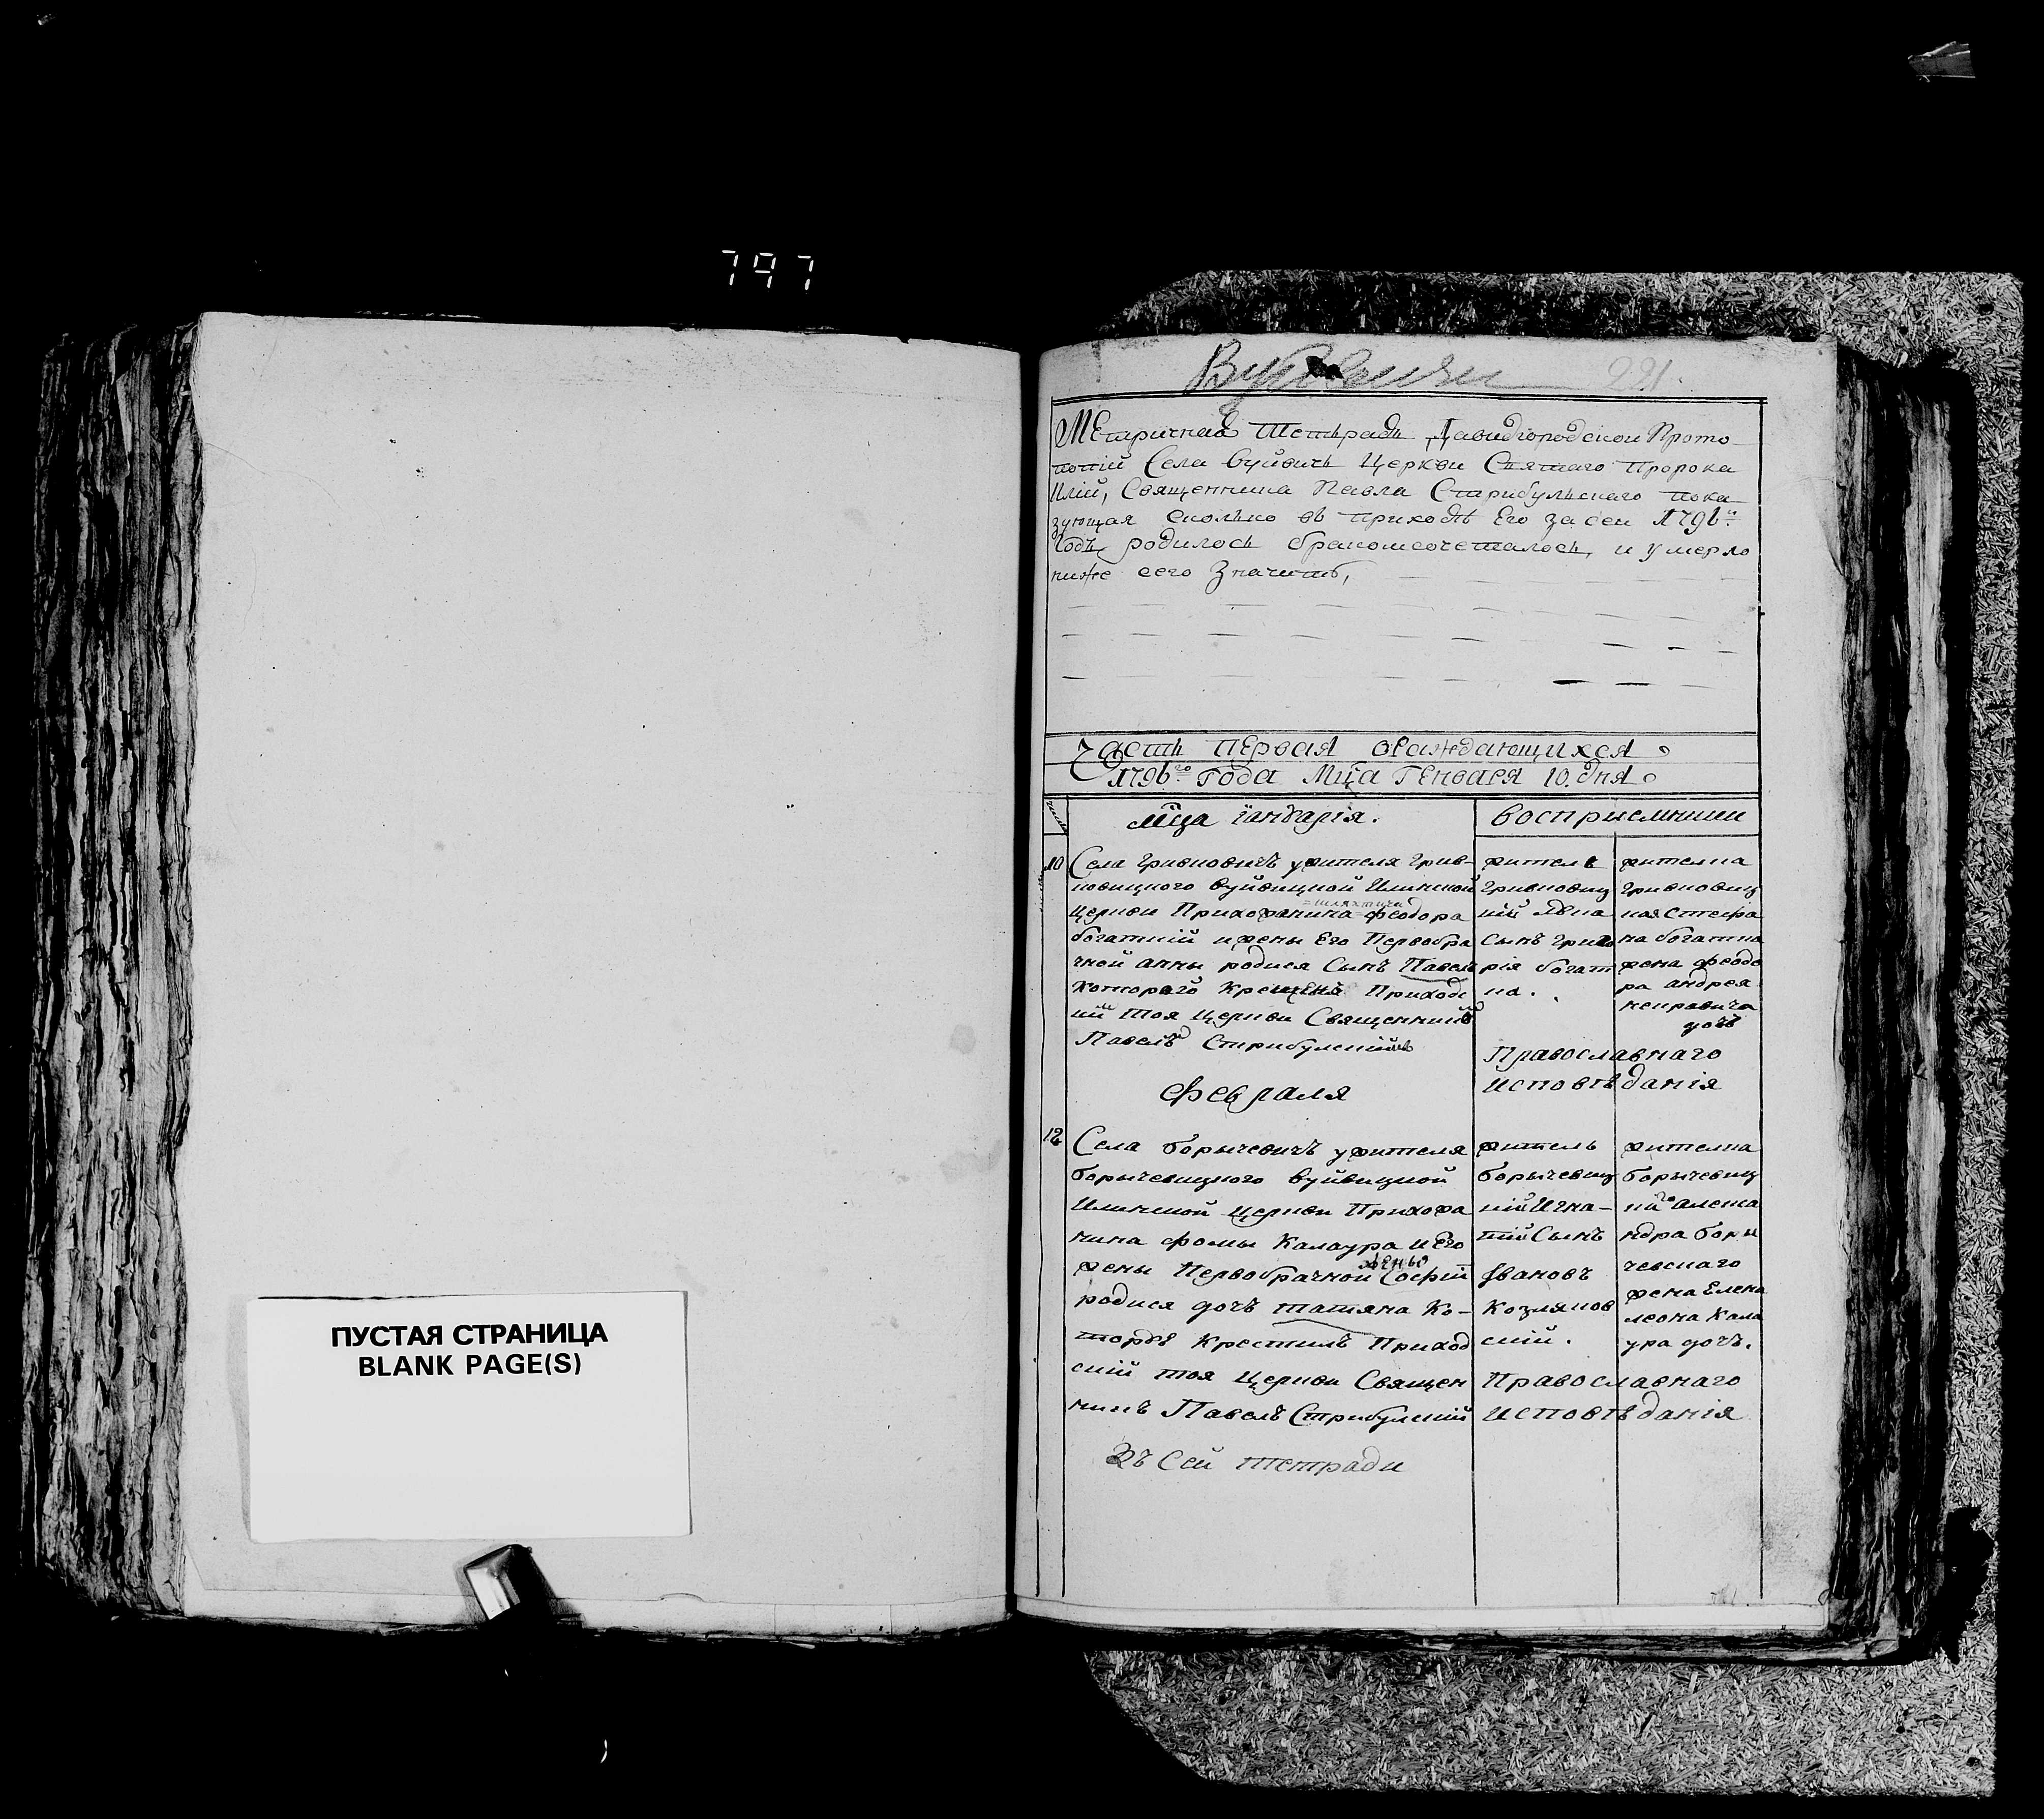 797
ПУСТАЯ СТРАНИЦА
BLANK PAGE(S)
221
Метричная Тетрадь Давидгородской Прото-
попіи Села Вуйвичь Церкви Святаго Пророка
Иліи, Священника Павла Стрибульскаго пока-
зующая сколько въ приходѣ Его за сей 1796й
Годъ родилось бракомсочеталось, и умерло
ниже сего Значитъ,
Часть первая ораждающихся
1796го Года Мца Генваря 10 дня
Мца іануарія.
восприемники
10
Села Гривковичъ ужителя Грив-
ковицкого Вуйвицкой Илинской
=шляхтича=
Церкви Прихожанина Феодора
богаткій ижены Его Первобра
чной анны родися Сынъ Павелъ
Которого Крещенъ Приходс
кій тоя Церкви Священник
Павел Стрибулскій
жителъ
Гривковиц
кій
Сынъ Григо
рія богат
ка.
жителка
Гривковиц
кая Стефа
на богатка
жена Феодо
ра андрея
дочъ
Православнаго
исповѣданія
Февраля
12
Села борычевичъ ужителя
борычевицкого Вуйвицкой
Илинской Церкви Прихожа
нина Фомы Калаура и Его
жены Первобрачной Софіи
родися дочъ татяна Ко-
торую Крестилъ Приход
скій тоя Церкви Священ
никъ Павелъ Стрибулскій
жителъ
борычевиц
кій Игна-
тій Сынъ
Івановъ
Козляков
скій.
жителка
борычевиц
кая алекса
ндра боры
чевскаго
жена Елена
леона Кала
ура дочъ.
Православнаго
исповѣданія
Въ Сей тетради